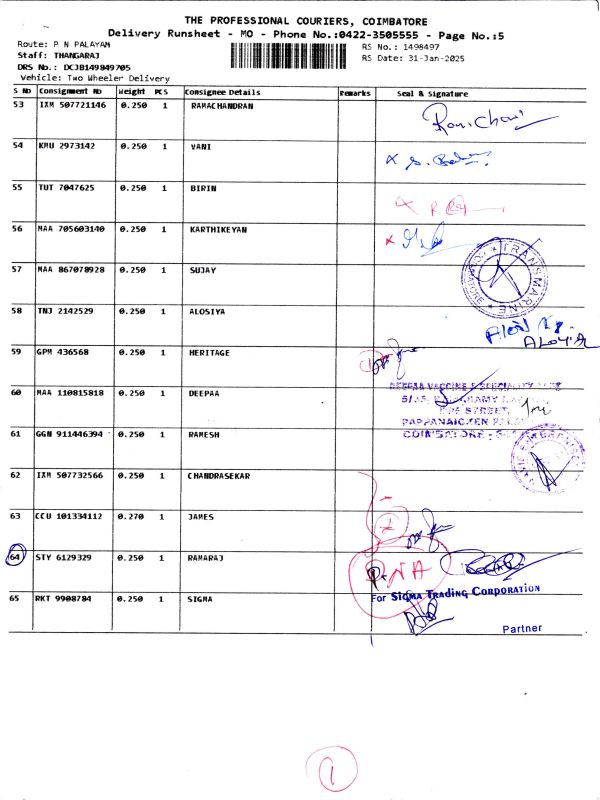 THE PROFESSIONAL COURIERS, COIMBATORE
Delivery Runsheet - MO - Phone No.:0422-3505555 - Page No.:5
Route: P N PALAYAM
RS No.: 1498497
Staff: THANGARAJ
RS Date: 31-Jan-2025
DRS No.: DCJB149849705
Vehicle: Two Wheeler Delivery
S No Consignment No Weight PCS Consignee Details Remarks Seal & Signature
53 IXM 507721146 0.250 1 RAMACHANDRAN
54 KMU 2973142 0.250 1 VANI
55 TUT 7047625 0.250 1 BIRIN
56 MAA 705603140 0.250 1 KARTHIKEYAN
TRANSMARINE
57 MAA 867078928 0.250 1 SUJAY
58 TNJ 2142529 0.250 1 ALOSIYA
59 GPM 436568 0.250 1 HERITAGE
DEEPAA VACCINE & SPECIALITY
60 MAA 110815818 0.250 1 DEEPAA
STREET,
PAPPANAICKEN
61 GGN 911446394 0.250 1 RAMESH
COIMBATORE
62 IXM 507732566 0.250 1 CHANDRASEKAR
63 CCU 101334112 0.270 1 JAMES
64 STY 6129329 0.250 1 RAMARAJ
NA
65 RKT 9908784 0.250 1 SIGMA
For SIGMA TRADING CORPORATION
Partner
1